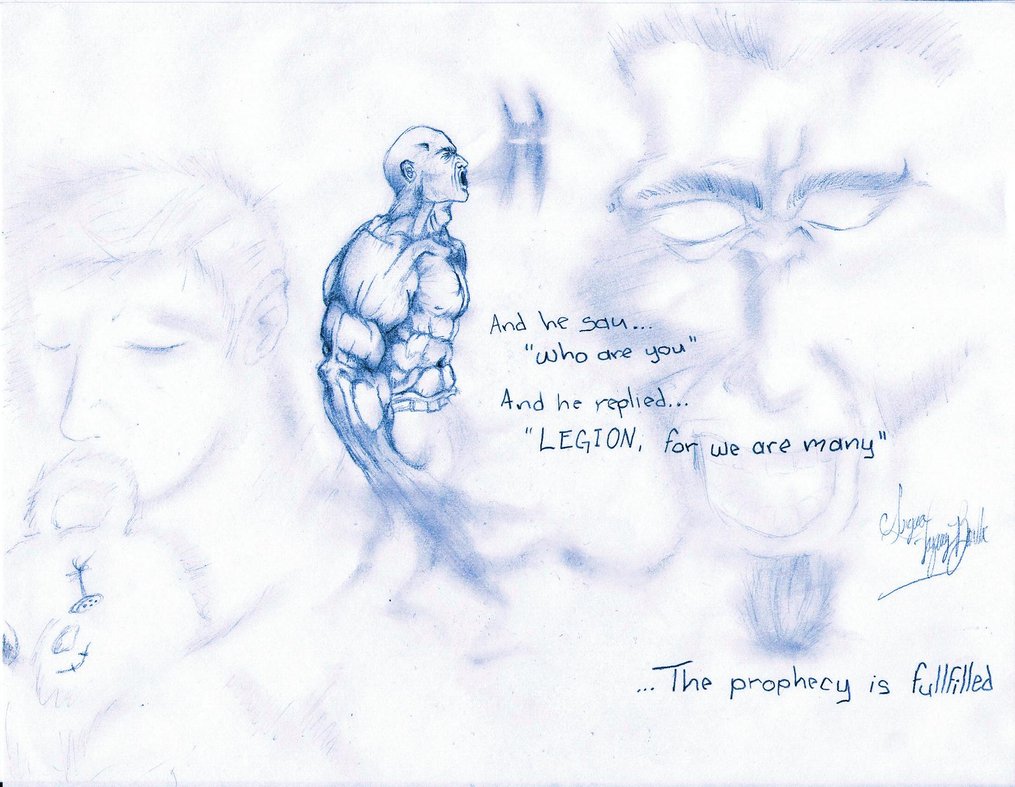 And he say...
"who are you"
And he replied...
"LEGION, for we are many"
...The prophecy is fullfilled